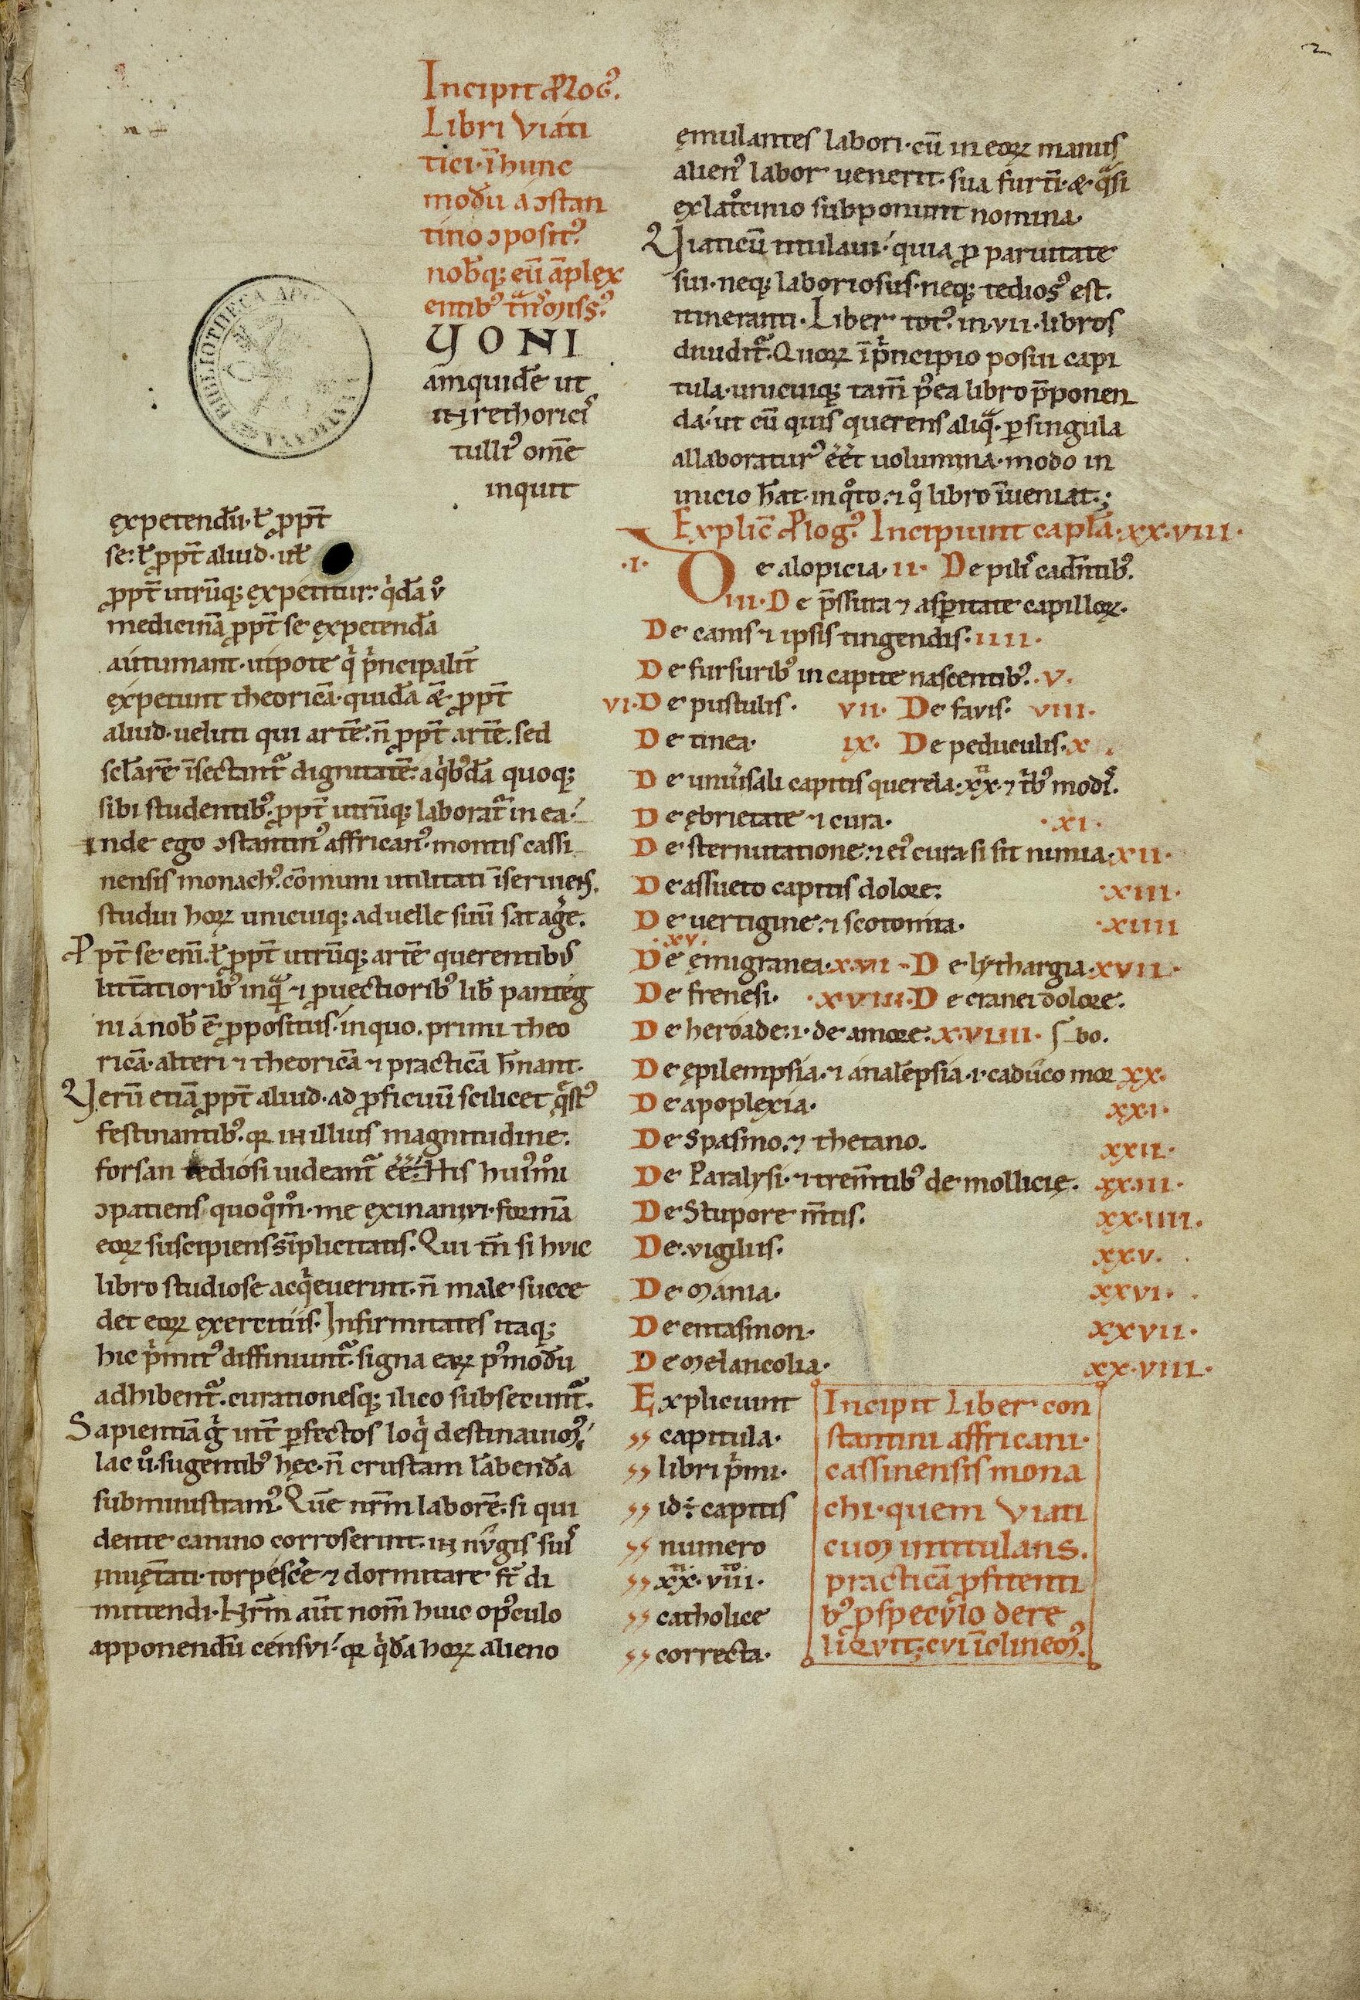 2
Incipit P̄log᷒.
Libri Viati
tici·ı̄ hunc
modū a ↄstan
tino ↄposit᷒.
nobq; eū āplex
entib᷒ t̄n̄smiss᷒.
QVONI
am quidē ut
in rethoricis
tulli᷒ om̄e
inquit
expetendū·ł ꝓpt̄
se: ł ꝓpt̄ aliud·uł
ꝓpt̄ utrūq; expetitur: q̇dā ů
medicinā ꝓpt̄ se expetendā
autumant·utpote q̇ ṗncipalit̄
expetunt theoricā· quidā āe ꝓpt̄
aliud·ueluti qui artē·n̄ ꝓpt̄ artē·sed
sclārē ı̄sectant᷑ dignitatē: a q̇b᷒dā quoq;
sibi studentib᷒· ꝓpt̄ utrūq; laborat᷑ in ea·
Inde ego ↄstantin᷒ affrican᷒·montis cassi
nensis monach᷒·cōmuni utilitati ı̄seruiēs.
studui hoꝝ unicuiq; ad uelle suū satag̓e.
Ppt̄ se enı̄·ł ꝓpt̄ utrūq; artē querentibus
litt̄atiorib᷒ inq̄ ⁊ ꝓuectiorib᷒ lib̄ panteg
ni a nob̄ ē ꝓpositus·in quo·primi theo
ricā·alteri ⁊ theoricā ⁊ practicā h̄nant.
Verū etiā ꝓpt̄ aliud·ad ꝓficuū scilicet q̄st᷒
festinantib᷒·qꝛ in illius magnitudine·
forsan tediosi uideant᷑ ēē: His hui᷒mōi
ↄpatiens quoq̊m̊·me exinaniui·formā
eoꝝ suscipiens sı̄plicitatis·Qui tn̄ si huic
libro studiose acq̇euerint·n̄ male succe
det eoꝝ exercitiis·Infirmitates itaq;
hic ṗmit᷒ diffiniunt᷑·signa eaꝝ p᷒modū
adhibent᷑·curationesq; ilico subsecunt᷑.
Sapientiā g̊ int̄ ꝑfectos loq̇ destinauim᷒·
lac ů·sugentib᷒ hęc·n̄ crustam łabendā
subministram᷒·Quē nr̄m laborē·si qui
dente canino corroserint·in nugis suis
inuet̄ati·torpesc̓e ⁊ dormitare st̄ di
mittendi·Nr̄m aūt nom̄ huic op᷒culo
apponendū censui·qꝛ q̇dā hoꝝ alieno
ęmulantes labori·cū in eoꝝ manus
alien᷒ labor uenerit·sua furtı̄·& q̄si
ex lat̊cinio subponunt nomina·
Viaticū titulaui·quia ꝓ paruitate
sui·neq; laboriosus·neq; tedios᷒ est.
itineranti·Liber tot᷒ in·vii·libros
diuidit᷑·Quoꝝ ı̄ ṗncipio posui capi
tula·unicuiq; tam̄ p̄ea libro p̄ponen
da·ut cū quis querens aliq̄·ꝑ singula
allaboratur᷒ ēēt uolumina·modo in
inicio h̄at·in q̊to·⁊ q̊ libro ı̄ueniat·;
Explic̄ P̄log᷒. Incipiunt capł̄a·xx·viii·
·I· De alopicia·ii· De pilis cadn̄tib᷒.
iii·De p̄ssura ⁊ asꝑitate capilloꝝ.
De canis ⁊ ipsis tingendis·iiii·
De fursurib᷒ in capite nascentib᷒·v·
vi·De pustulis· vii· De fauis· viii·
De tinea· ix· De peduculis·x·
De uniu̓sali capitis querela·xx·⁊ t̓b᷒ modis.
De ębrietate ⁊ cura· ·xi·
De sternutatione·⁊ ei᷒ cura si sit nimia·xii·
De assueto capitis dolore· ·xiii·
De uertigine·⁊ scotomia· ·xiiii
·xv·
De ęmigranea·xvii· De lythargia·xvii·
De frenesi· ·xviii·De cranei dolore·
De heroade·i· de amore·xviiii· bo.
De epilempsia·⁊ analēpsia·i·caduco mor xx·
De apoplexia· xxi·
De Spasmo·⁊ thetano. xxii·
De Paralysi·⁊ trem̄tib᷒ de mollicie· xx·iii·
De Stupore m̄tis. xx·iiii·
De·uigiliis· xxv·
De Mania· xxvi·
De entasmon· xxvii·
De Melancolia· xx·viii·
Expliciunt
capitula·
libri ṗmi·
id·̇ capitis
numero
xx·viii·
catholice
correcta·
Incipit Liber con
stantini affricani·
cassinensis mona
chi·quem Viati
cum intitulans.
practicā ꝓfitenti
b᷒ ꝓ speculo dere
liq̇uit; cui ı̄clinem᷒.
BIBLIOTHECA APOSTOLICA VATICANA